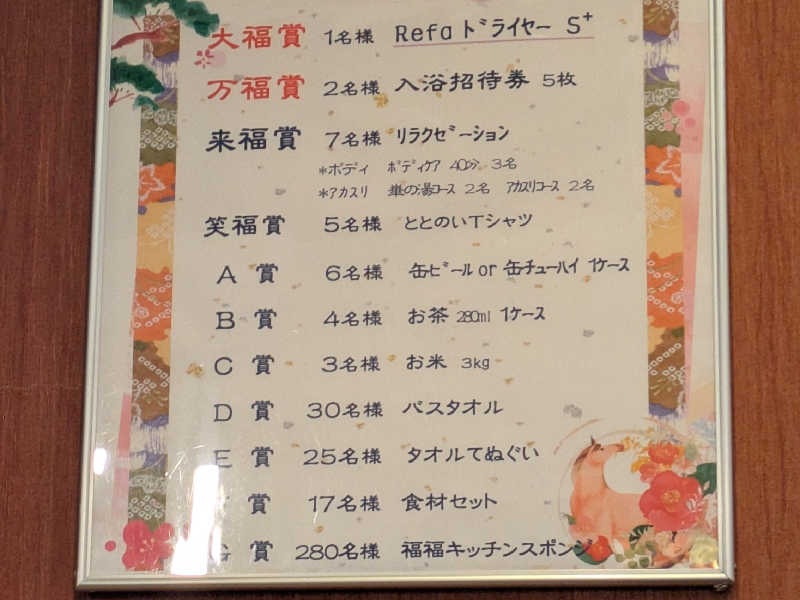 大福賞 1名様 Refa ドライヤー S+
万福賞 2名様 入浴招待券 5枚
来福賞 7名様 リラクゼーション
*ボディ ボディケア 40分 3名
*アカスリ 華の湯コース 2名 アカスリコース 2名
笑福賞 5名様 ととのいTシャツ
A 賞 6名様 缶ビール or 缶チューハイ 1ケース
B 賞 4名様 お茶 280ml 1ケース
C 賞 3名様 お米 3kg
D 賞 30名様 バスタオル
E 賞 25名様 タオルてぬぐい
賞 17名様 食材セット
G 賞 280名様 福福キッチンスポンジ